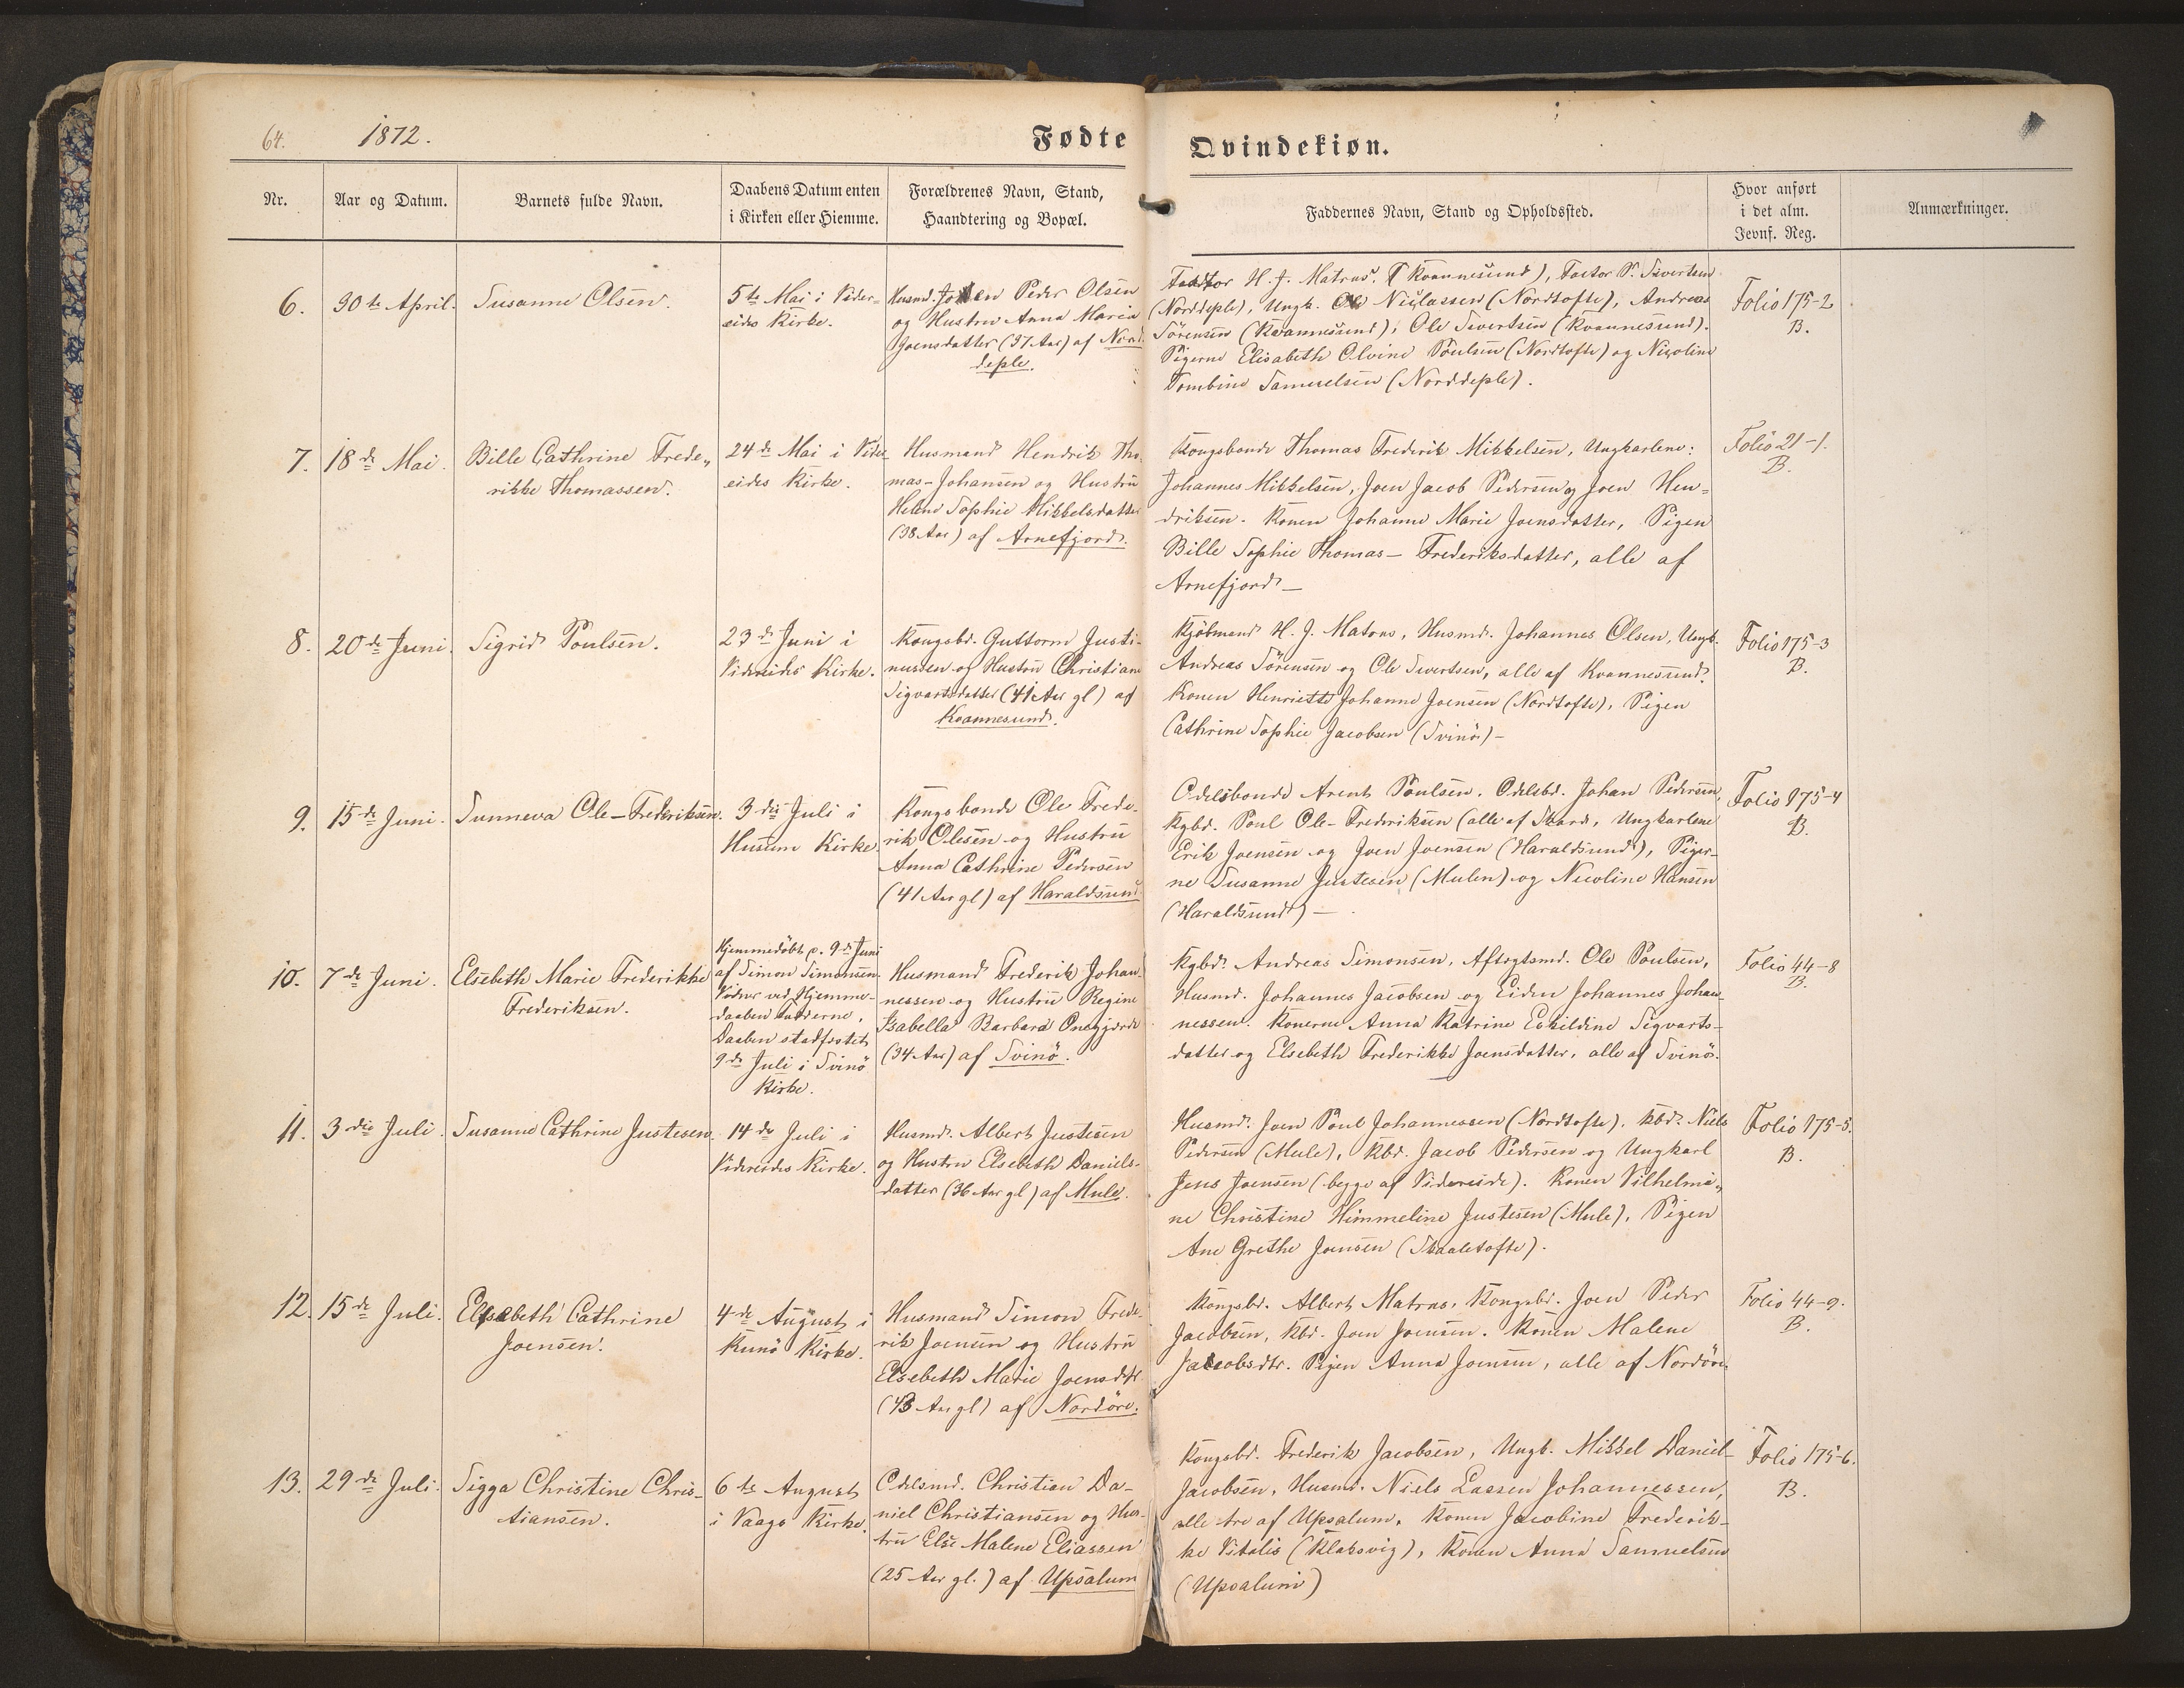 64. 1872. Fødte Qvindekiøn.
Nr.
Aar og Datum.
Barnets fulde Navn.
Daabens Datum enten
i Kirken eller Hiemme.
Forældrenes Navn, Stand,
Haandtering og Bopæl.
Faddernes Navn, Stand og Opholdssted.
Hvor anført
i det alm.
Jevnf. Reg.
Anmærkninger.
6.
30te April.
Susanne Olsen.
5te Mai i Vider-
eides Kirke.
Husmd. Joen Peder Olsen
og Hustru Anna Maria
Joensdatter (37 Aar) af Nord
deple.
Factor H. J. Matras (Kvannesund), Factor P. Sivertsen
(Norddeple), Ungk. Ole Niclassen (Nordtofte), Andreas
Sörensen (Kvannesund), Ole Sivertsen (Kvannesund).
Pigerne Elisabeth Olvine Poulsen (Nordtofte) og Nicoline
Dombine Samuelsen (Norddeple).
Folio 175-2
B.
7.
18de Mai.
Bille Cathrine Frede-
rikke Thomassen.
24de Mai i Vider-
eides Kirke.
Husmand Hendrik Tho-
mas-Johansen og Hustru
Helene Sophie Mikkelsdatter
(38 Aar) af Arnefjord.
Kongsbonde Thomas Frederik Mikkelsen, Ungkarlene:
Johannes Mikkelsen, Joen Jacob Pedersen og Joen Hen-
driksen. Konen Johanne Marie Joensdatter, Pigen
Bille Sophie Thomas-Frederiksdatter, alle af
Arnefjord-
Folio 21-1.
B.
8.
20de Juni.
Sigrid Poulsen.
23de Juni i
Videreides Kirke.
Kongsbd. Guttorm Justi-
nussen og Hustru Christiane
Sigvartsdatter (41 Aar gl) af
Kvannesund.
Kjöbmand H. J. Matras, Husmd. Johannes Olsen, Ungk.
Andreas Sörensen og Ole Sivertsen, alle af Kvannesund.
Konen Henriette Johanne Joensen (Nordtofte), Pigen
Cathrine Sophie Jacobsen (Svinö)-
Folio 175-3
B.
9.
15de Juni.
Sunneva Ole-Frederiksen.
3die Juli i
Husum Kirke.
Kongsbonde Ole Frede-
rik Olesen og Hustru
Anna Cathrine Pedersen
(41 Aar gl) af Haraldsund
Odelsbonde Arent Poulsen, Odelsbd. Johan Pedersen,
Kgbd. Poul Ole-Frederiksen (alle af Skard, Ungkarlene
Erik Joensen og Joen Joensen (Haraldsund), Piger-
ne Susanne Justesen (Mulen) og Nicoline Hansen
(Haraldsund)-
Folio 175-4
B.
10.
7de Juni.
Elsebeth Marie Frederikke
Frederiksen.
Hjemmedöbt d. 9de Juni
af Simon Simonsen.
Vidner ved Hjemme-
daaben Fadderne.
Daaben stadfæstet
9de Juli i Svinö
Kirke.
Husmand Frederik Johan-
nessen og Hustru Regine
Isabella Barbara
(34 Aar) af Svinö.
Kgbd. Andreas Simonsen, Aftægtsmd. Ole Poulsen,
Husmd. Johannes Jacobsen og Johannes Johan-
nessen. Konerne Anna Katrine Eskildine Sigvarts-
datter og Elsebeth Frederikke Joensdatter, alle af Svinö.
Folio 44-8
B.
11.
3die Juli.
Susanne Cathrine Justesen
14de Juli i
Videreides Kirke.
Husmd. Albert Justesen
og Hustru Elsebeth Daniels-
datter (36 Aar gl) af Mule.
Husmd. Joen Poul Johannessen (Nordtofte), Kbd. Niels
Pedersen (Mule), Kbd. Jacob Pedersen og Ungkarl
Jens Joensen (begge af Videreide). Konen Vilhelmi-
ne Christine Himmeline Justesen (Mule), Pigen
Ane Grethe Joensen (Skaaletofte).
Folio 175-5.
B.
12.
15de Juli.
Elsebeth Cathrine
Joensen.
4de August i
Kunö Kirke.
Husmand Simon Frede-
rik Joensen og Hustru
Elsebeth Marie Joensdtr
(43 Aar gl) af Nordöre.
Kongsbd. Albert Matras, Kongsbd. Joen Peder
Jacobsen, Kbd. Joen Joensen. Konen Malene
Jacobsdtr. Pigen Anna Joensen, alle af Nordöre.
Folio 44-9.
B.
13.
29de Juli.
Sigga Christine Chris-
tiansen.
6te August
i Vaags Kirke.
Odelsmd. Christian Da-
niel Christiansen og Hus-
tru Else Malene Eliassen
(25 Aar gl.) af Upsalum
Kongsbd. Frederik Jacobsen, Ungk. Mikkel Daniel
Jacobsen, Husmd. Niels Lassen Johannessen,
alle tre af Upsalum. Konen Jacobine Frederik-
ke Vitalis (Klaksvig), Konen Anna Samuelsen
(Upsalum)
Folio 175-6.
B.